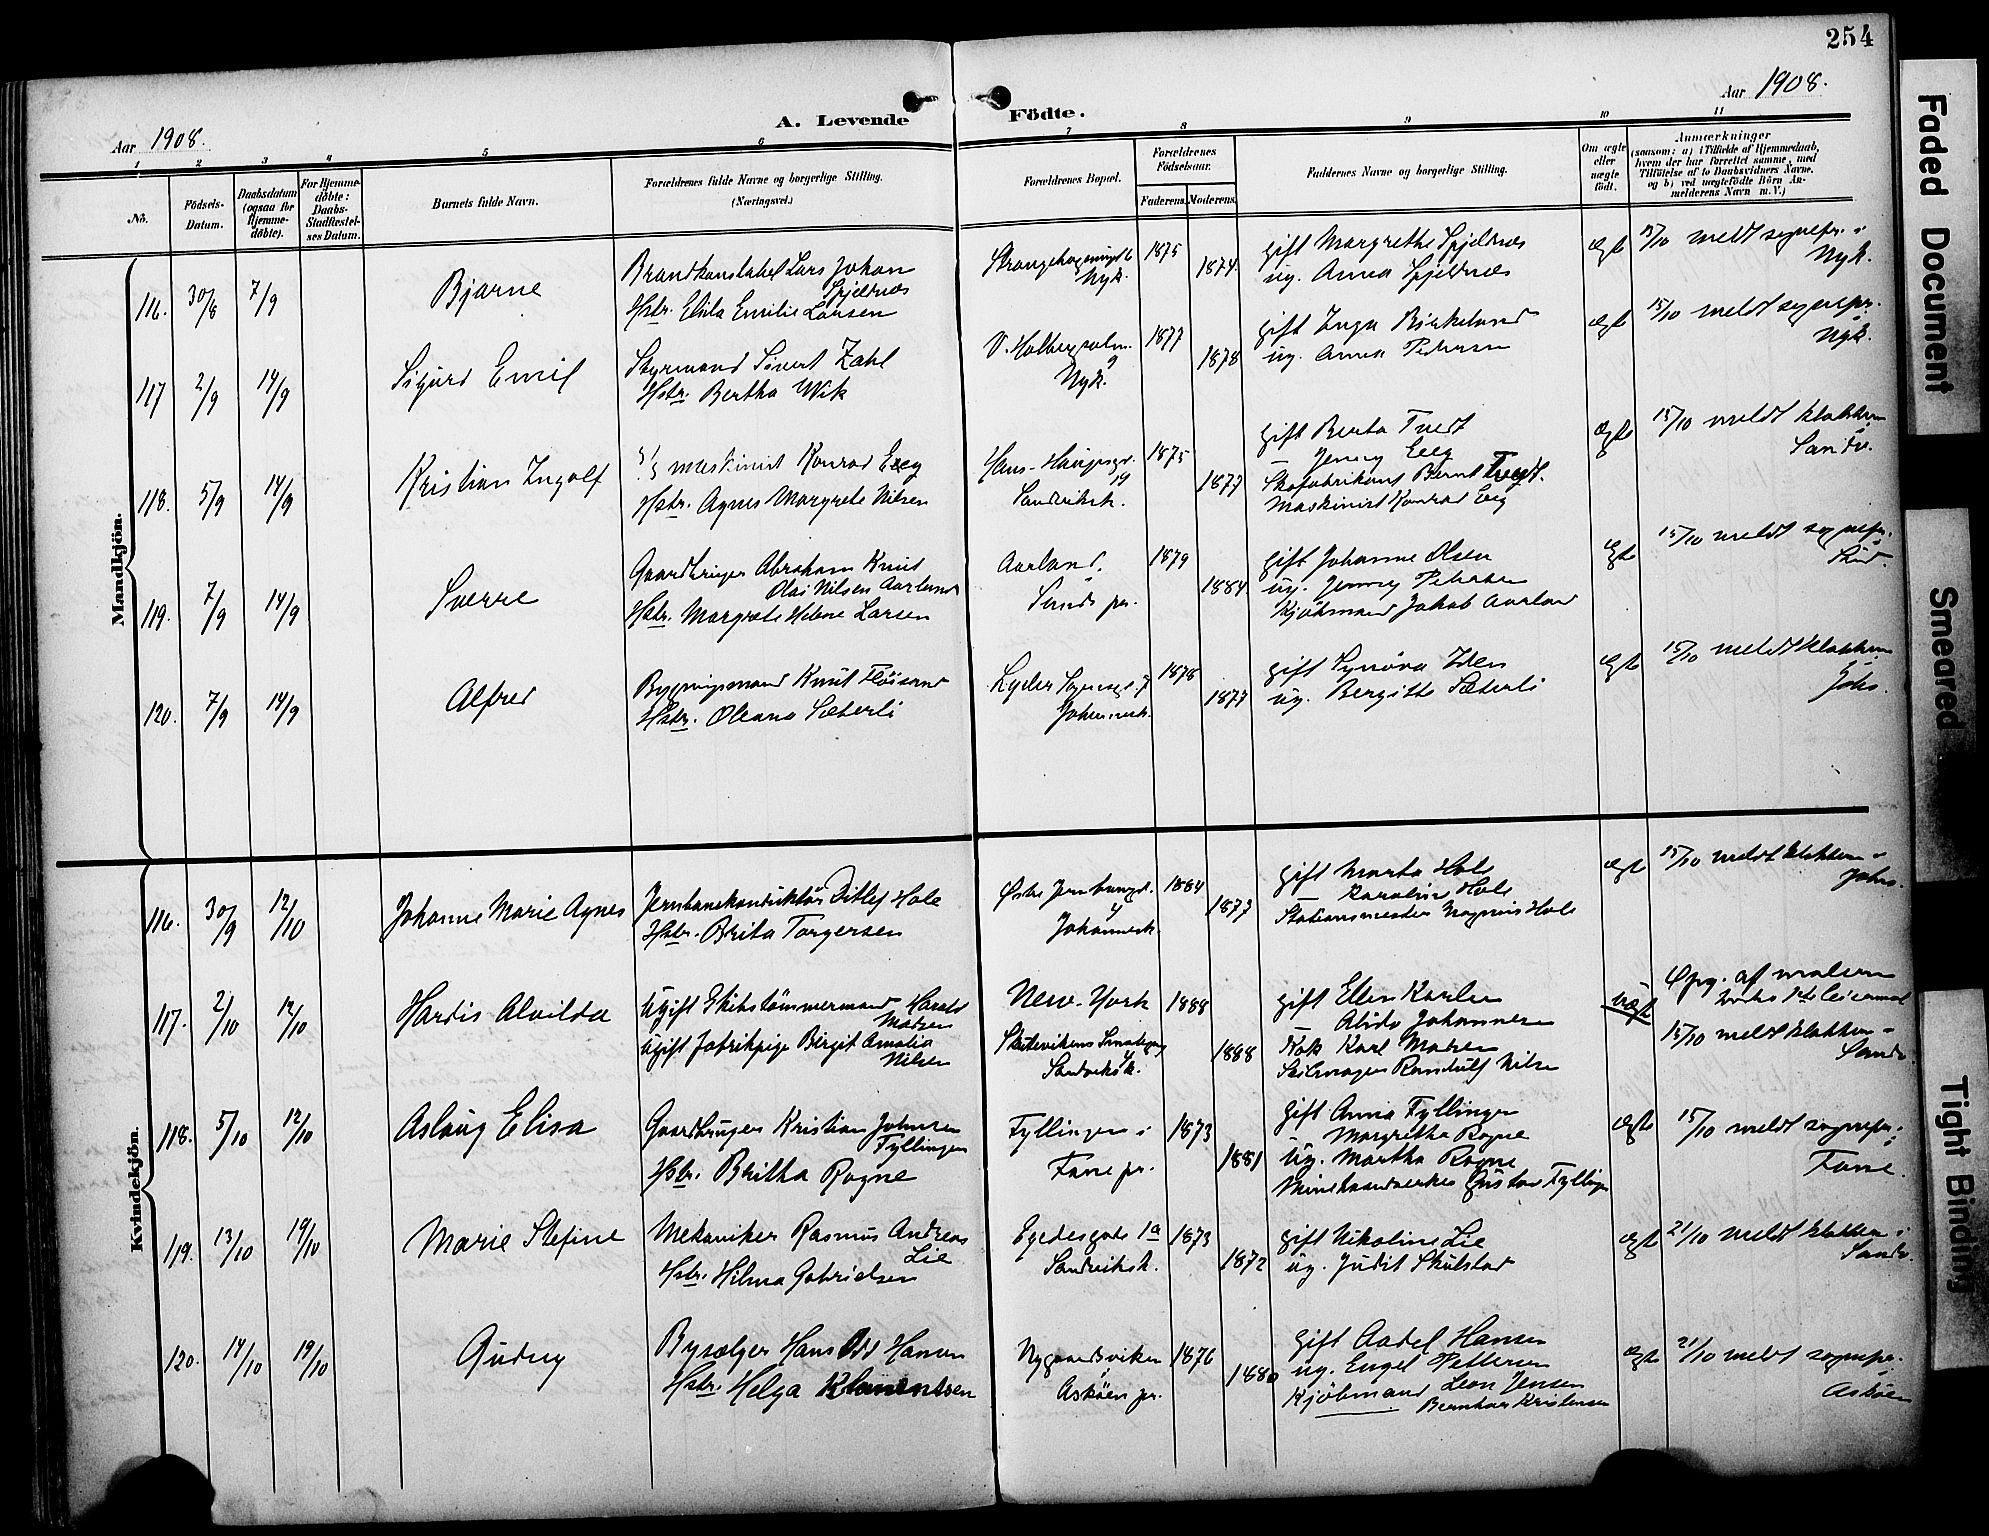 254
Aar 1908.
A. Levende Födte.
Aar 1908.
1 2 3 4 5 6 7 8 9 10 11
No.
Födsels-Datum.
Daabsdatum (ogsaa for Hjemme-døbte).
For Hjemme-døbte: Daabs-Stadfæstel-ses Datum.
Barnets fulde Navn.
Forældrenes fulde Navne og borgerlige Stilling.
(Næringsvei.)
Forældrenes Bopæl.
Forældrenes Födselsaar.
Faderens. Moderens.
Faddernes Navne og borgerlige Stilling.
Om ægte eller uægte født.
Anmærkninger
(saasom: a) i Tilfælde af Hjemmedaab, hvem der har forrettet samme, med Tilföielse af to Daabsvidners Navne, og b) ved uægtefödte Börn An-melderens Navn m. V.)
Mandkjön.
116. 30/8 7/9 Bjarne
Brandkonstabel Lars Johan Spjeldnæs
Hstr. Elida Emilie Larsen
Nyk.
1875 1874
gift Margrethe Spjeldnæs
ug. Anna Spjeldnæs
ægt
15/10 meldt sognepr. i Nyk.
117 2/9 14/9 Sigurd Emil
Styrmand Sivert Zahl
Hstr. Bertha Wik
V. Holbergsalm. 9
Nyk.
1877 1878
gift Inga Birkeland
ug. Anna Petersen
ægt
15/10 meldt sognepr. i Nyk.
118. 5/9 14/9 Kristian Ingolf
maskinist Konrad Eeg
Hstr. Agnes Margrete Nilsen
Hans-Haugesgd. 19
Sandviksk.
1875 1877
gift Berta Tvedt
Jenny Eeg
Skofabrikant Bernt Tvedt.
Maskinist Konrad Eeg
ægte
15/10 meldt klokkeren Sandv.
119. 7/9 14/9 Sverre
Gaardbruger Abraham Knud
Olai Nilsen Aarland
Hstr. Margrete Helene Larsen
Aarland.
Sunds pr.
1879 1884
gift Johanne Olsen
ug. Jenny Petersen
Kjöbmand Jakob Aarland
ægte
15/10 meldt sognepr. i Sund.
120. 7/9 14/9 Alfred
Bygningsmand Knut Flöisand
Hstr. Oleana Sæterli
Lyder Sagensgd. 7
Johannesk.
1878 1877
gift Synöva Iden
ug. Bergitte Sæterli
ægte
15/10 meldt klokkeren Johs.
Kvindekjön.
116. 30/9 12/10 Johanne Marie Agnes
Jernbanekonduktör Ditlef Hole
Hstr. Brita Torgersen
Johannesk.
1884 1877
gift Marta Hole
Karoline Hole
Stationsmester Magnus Hole
ægt
15/10 meldt klokkeren i Johs.
117. 2/10 12/10 Hardis Alvilda
Ugift Skibstömmermand Harald Madsen
Ugift Fabrikpige Birgit Amalia Nilsen
New-York
Sandviksk.
1888 1888
gift Ellen Karlsen
Alida Johannesen
Kok Karl Madsen
Seilmager Randulf Nilsen
uægt
Opg. af moderen
15/10 meldt klokkeren i Sandv.
118. 5/10 12/10 Aslaug Elisa
Gaardbruger Kristian Johnsen Fyllingen
Hstr. Britha Rogne
Fyllingen i
Fane pr.
1873 1881
gift Anna Fyllingen
Margretha Rogne
ug. Martha Rogne
Minehaandverker Gustav Fyllingen
ægte
15/10 meldt sognepr. i Fane.
119. 13/10 19/10 Marie Stefine
Mekaniker Rasmus Andreas Lie
Hstr. Hilma Gabrielsen
Egedesgade 1a
Sandviksk.
1873 1872
gift Nikoline Lie
ug. Judit Skulstad
ægt
21/10 meldt klokkeren i Sandv.
120. 14/10 19/10 Gudny
Bysælger Hans Odd Hansen
Hstr. Helga Klementsen
Nygaardsviken
Asköen pr.
1876 1880
gift Aadel Hansen
ug. Engel Pettersen
Kjöbmand Leon Jensen
Bernhar Kristensen
ægt
21/10 meldt sognepr. i Asköen
Faded Document
Smeared
Tight Binding